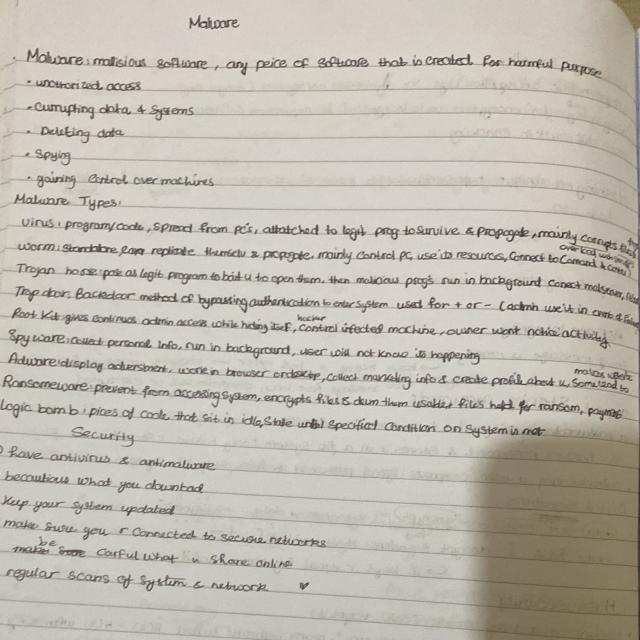 Malware
. Malware: malisious software, any peice of software that is created for harmful purpose
• unathorized access
• Currupting data, & Systems
• Deleting data
• Spying
• gaining control over machines
Malware Types:
Virus: program/code, spread from pc's, attatched to legit prog to survive & propogate, mainly corrupts files
worm: standalone, replicate themselv & propogate, mainly control pc, use its resources, Connect to Comand & control
Trojan horse: pose as legit program to bait u to open them, then malicious prog's run in background conect
Trap door: Backdoor method of bypassing authentication to enter system used for + or - (admn use it in
hacker
Root Kit: gives continuos admin access while hiding itself, control infected machine, owner wont notice activity
Spyware: collect personal info, run in background, user will not know its happening
Adware: display adversment, work in browser or desktop, collect marketing info & create profile about u, some lead to
Ransomeware: prevent from accessing system, encrypts files & files held for ransom, paymet
Logic bomb: pices of code that sit in idle state until specified condition on system is met
Security
have antivirus & antimalware
becautious what you download
Keep your system updated
make sure you r connected to secure networks
be
carful what u share online
regular scans of system & network ♥